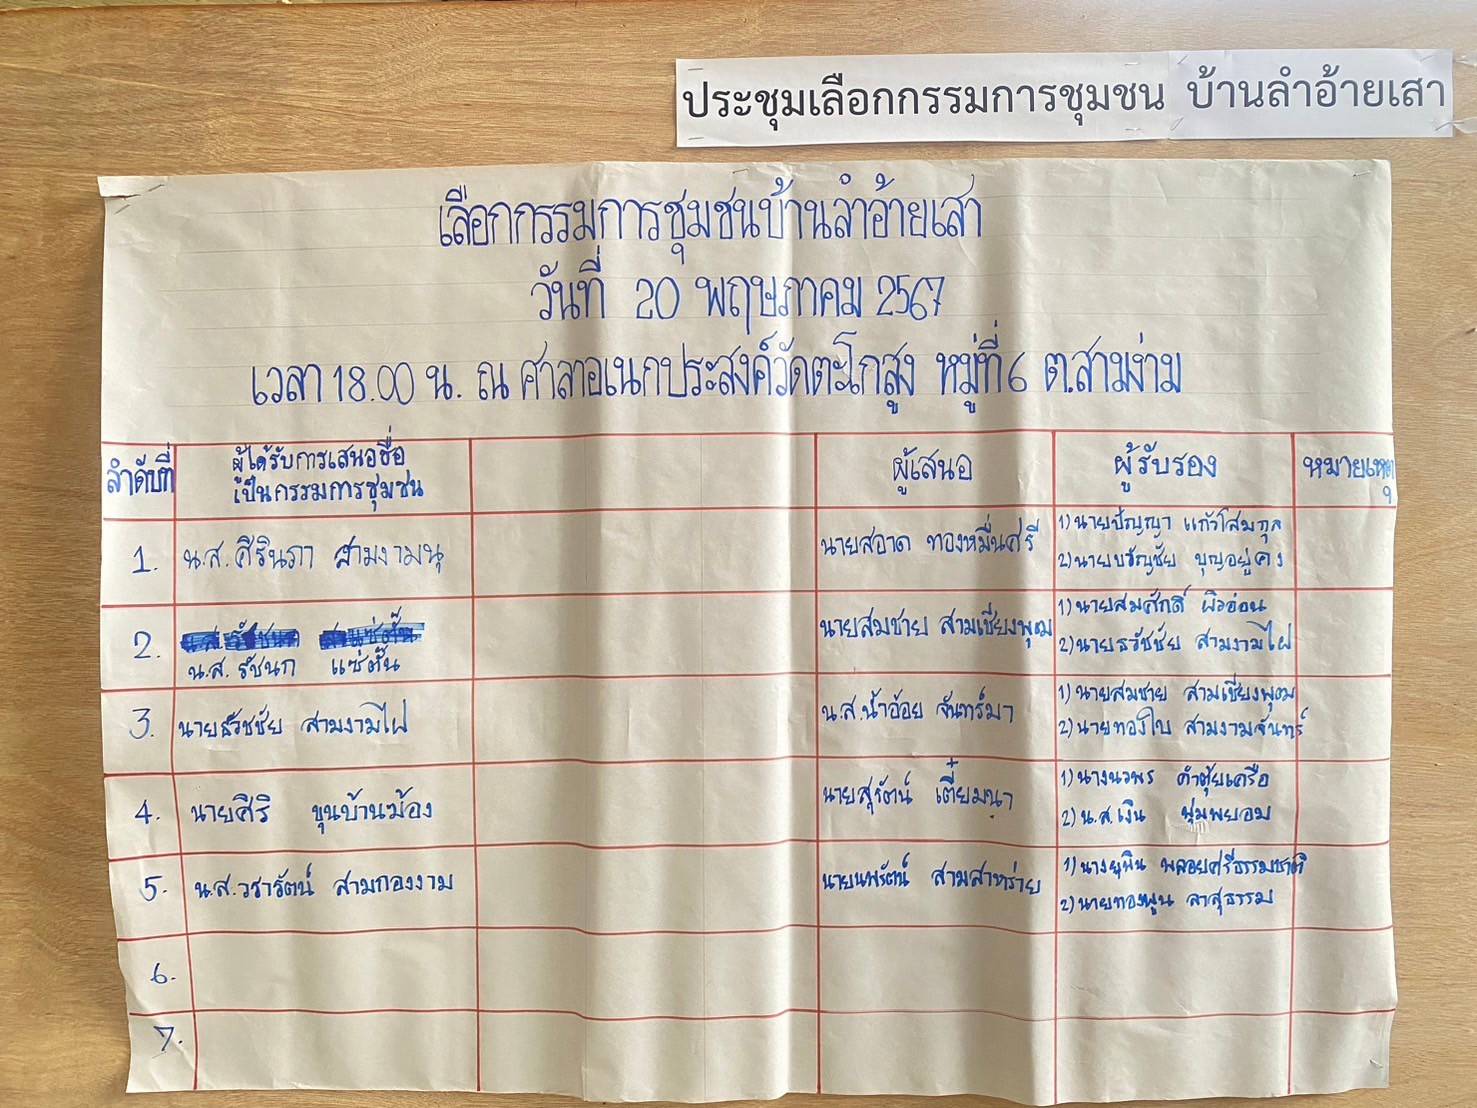 ประชุมเลือกกรรมการชุมชน บ้านลำอ้ายเสา
เลือกกรรมการชุมชนบ้านลำอ้ายเสา
วันที่ 20 พฤษภาคม 2567
เวลา 18.00 น. ณ ศาลาอเนกประสงค์วัดตะโกสูง หมู่ที่ 6 ต.สามง่าม
ลำดับที่ ผู้ได้รับการเสนอชื่อ ผู้เสนอ ผู้รับรอง หมายเหตุ
เป็นกรรมการชุมชน
1. น.ส.ศิรินภา สามงามนุ นายสอาด ทองหมื่นศรี 1) นายปัญญา แก้วโสมกุล
2) นายขวัญชัย บุญอยู่คง
2. น.ส. รัชนก แซ่ตั้น นายสมชาย สามเชี่ยงพุฒ 1) นายสมศักดิ์ ผิวอ่อน
2) นายธวัชชัย สามงามไฝ่
3. นายธวัชชัย สามงามไฝ่ น.ส.น้ำอ้อย จันทร์มา 1) นายสมชาย สามเชี่ยงพุฒ
2) นายทองใบ สามงามจันทร์
4. นายศิริ ขุนบ้านฆ้อง นายสุรัตน์ เตี๋ยมนา 1) นางนวพร คำตุ้ยเครือ
2) น.ส.เงิน พุ่มพยอม
5. น.ส.วชารัตน์ สามกองงาม นายนพรัตน์ สามสาหร่าย 1) นางยุพิน พลอยศรีธรรมชาติ
2) นายทองพูน ลาสุธรรม
6.
7.